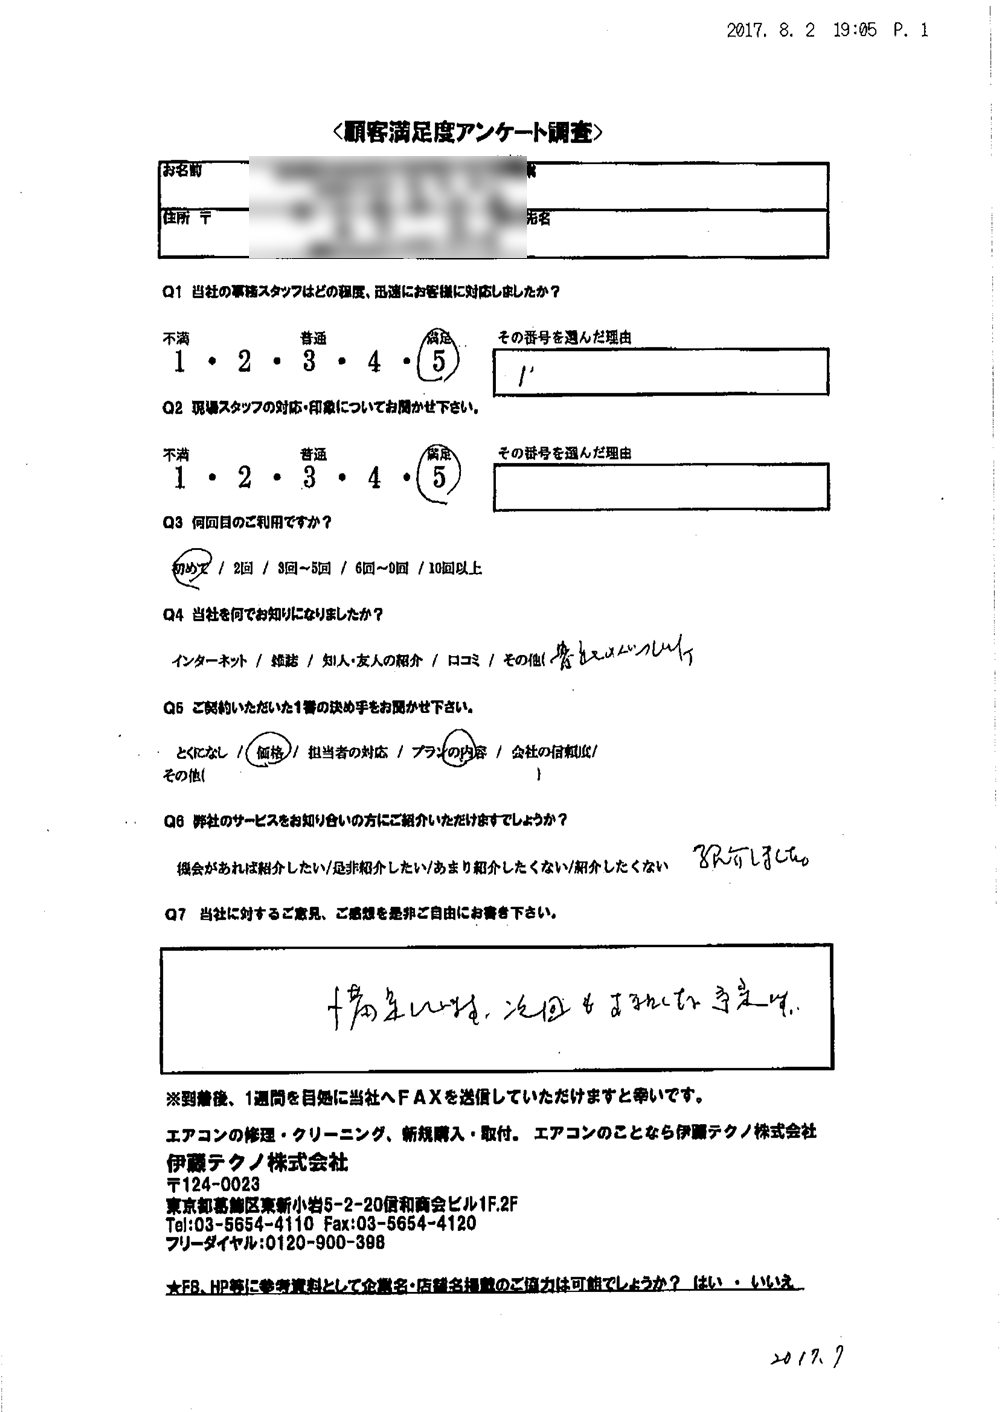 2017. 8. 2 19:05 P. 1
〈顧客満足度アンケート調査〉
お名前
住所 〒
先名
Q1 当社の事務スタッフはどの程度、迅速にお客様に対応しましたか?
不満 普通 満足 その番号を選んだ理由
1 ・ 2 ・ 3 ・ 4 ・ 5
Q2 現場スタッフの対応・印象についてお聞かせ下さい。
不満 普通 満足 その番号を選んだ理由
1 ・ 2 ・ 3 ・ 4 ・ 5
Q3 何回目のご利用ですか?
初めて / 2回 / 3回~5回 / 6回~9回 / 10回以上
Q4 当社を何でお知りになりましたか?
インターネット / 雑誌 / 知人・友人の紹介 / 口コミ / その他(
Q5 ご契約いただいた1番の決め手をお聞かせ下さい。
とくになし / 価格 / 担当者の対応 / プランの内容 / 会社の信頼度/
その他( )
Q6 弊社のサービスをお知り合いの方にご紹介いただけますでしょうか?
機会があれば紹介したい/是非紹介したい/あまり紹介したくない/紹介したくない 紹介しました。
Q7 当社に対するご意見、ご感想を是非ご自由にお書き下さい。
次回も
※到着後、1週間を目処に当社へFAXを送信していただけますと幸いです。
エアコンの修理・クリーニング、新規購入・取付。 エアコンのことなら伊藤テクノ株式会社
伊藤テクノ株式会社
〒124-0023
東京都葛飾区東新小岩5-2-20信和商会ビル1F.2F
Tel:03-5654-4110 Fax:03-5654-4120
フリーダイヤル:0120-900-398
★FB、HP等に参考資料として企業名・店舗名掲載のご協力は可能でしょうか? はい ・ いいえ
2017.7